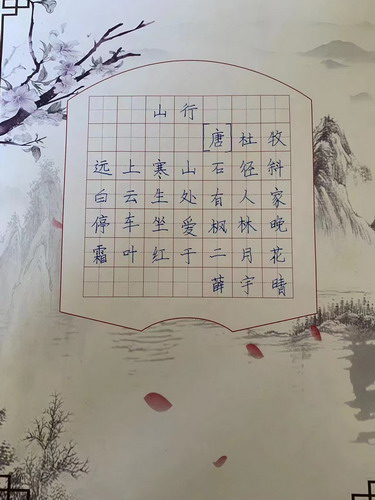 山行
[唐]杜牧
远上寒山石径斜
白云生处有人家
停车坐爱枫林晚
霜叶红于二月花
薛宇晴